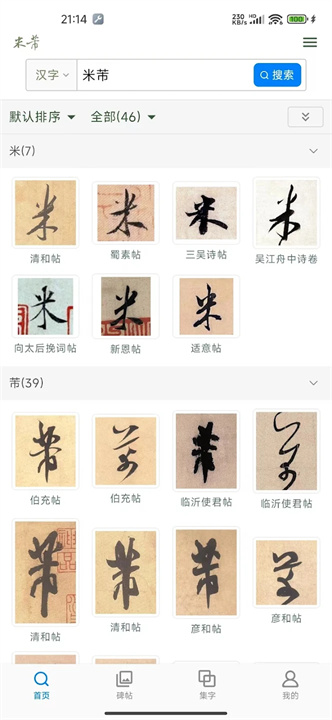 21:14
230 KB/s HD 5G 100
米芾
汉字 米芾 搜索
默认排序 全部(46)
米(7)
米 米 米 米
清和帖 蜀素帖 三吴诗帖 吴江舟中诗卷
米 米 米
向太后挽词帖 新恩帖 适意帖
芾(39)
芾 芾 芾 芾
伯充帖 伯充帖 临沂使君帖 临沂使君帖
芾 芾 芾 芾
清和帖 清和帖 彦和帖 彦和帖
首页 碑帖 集字 我的